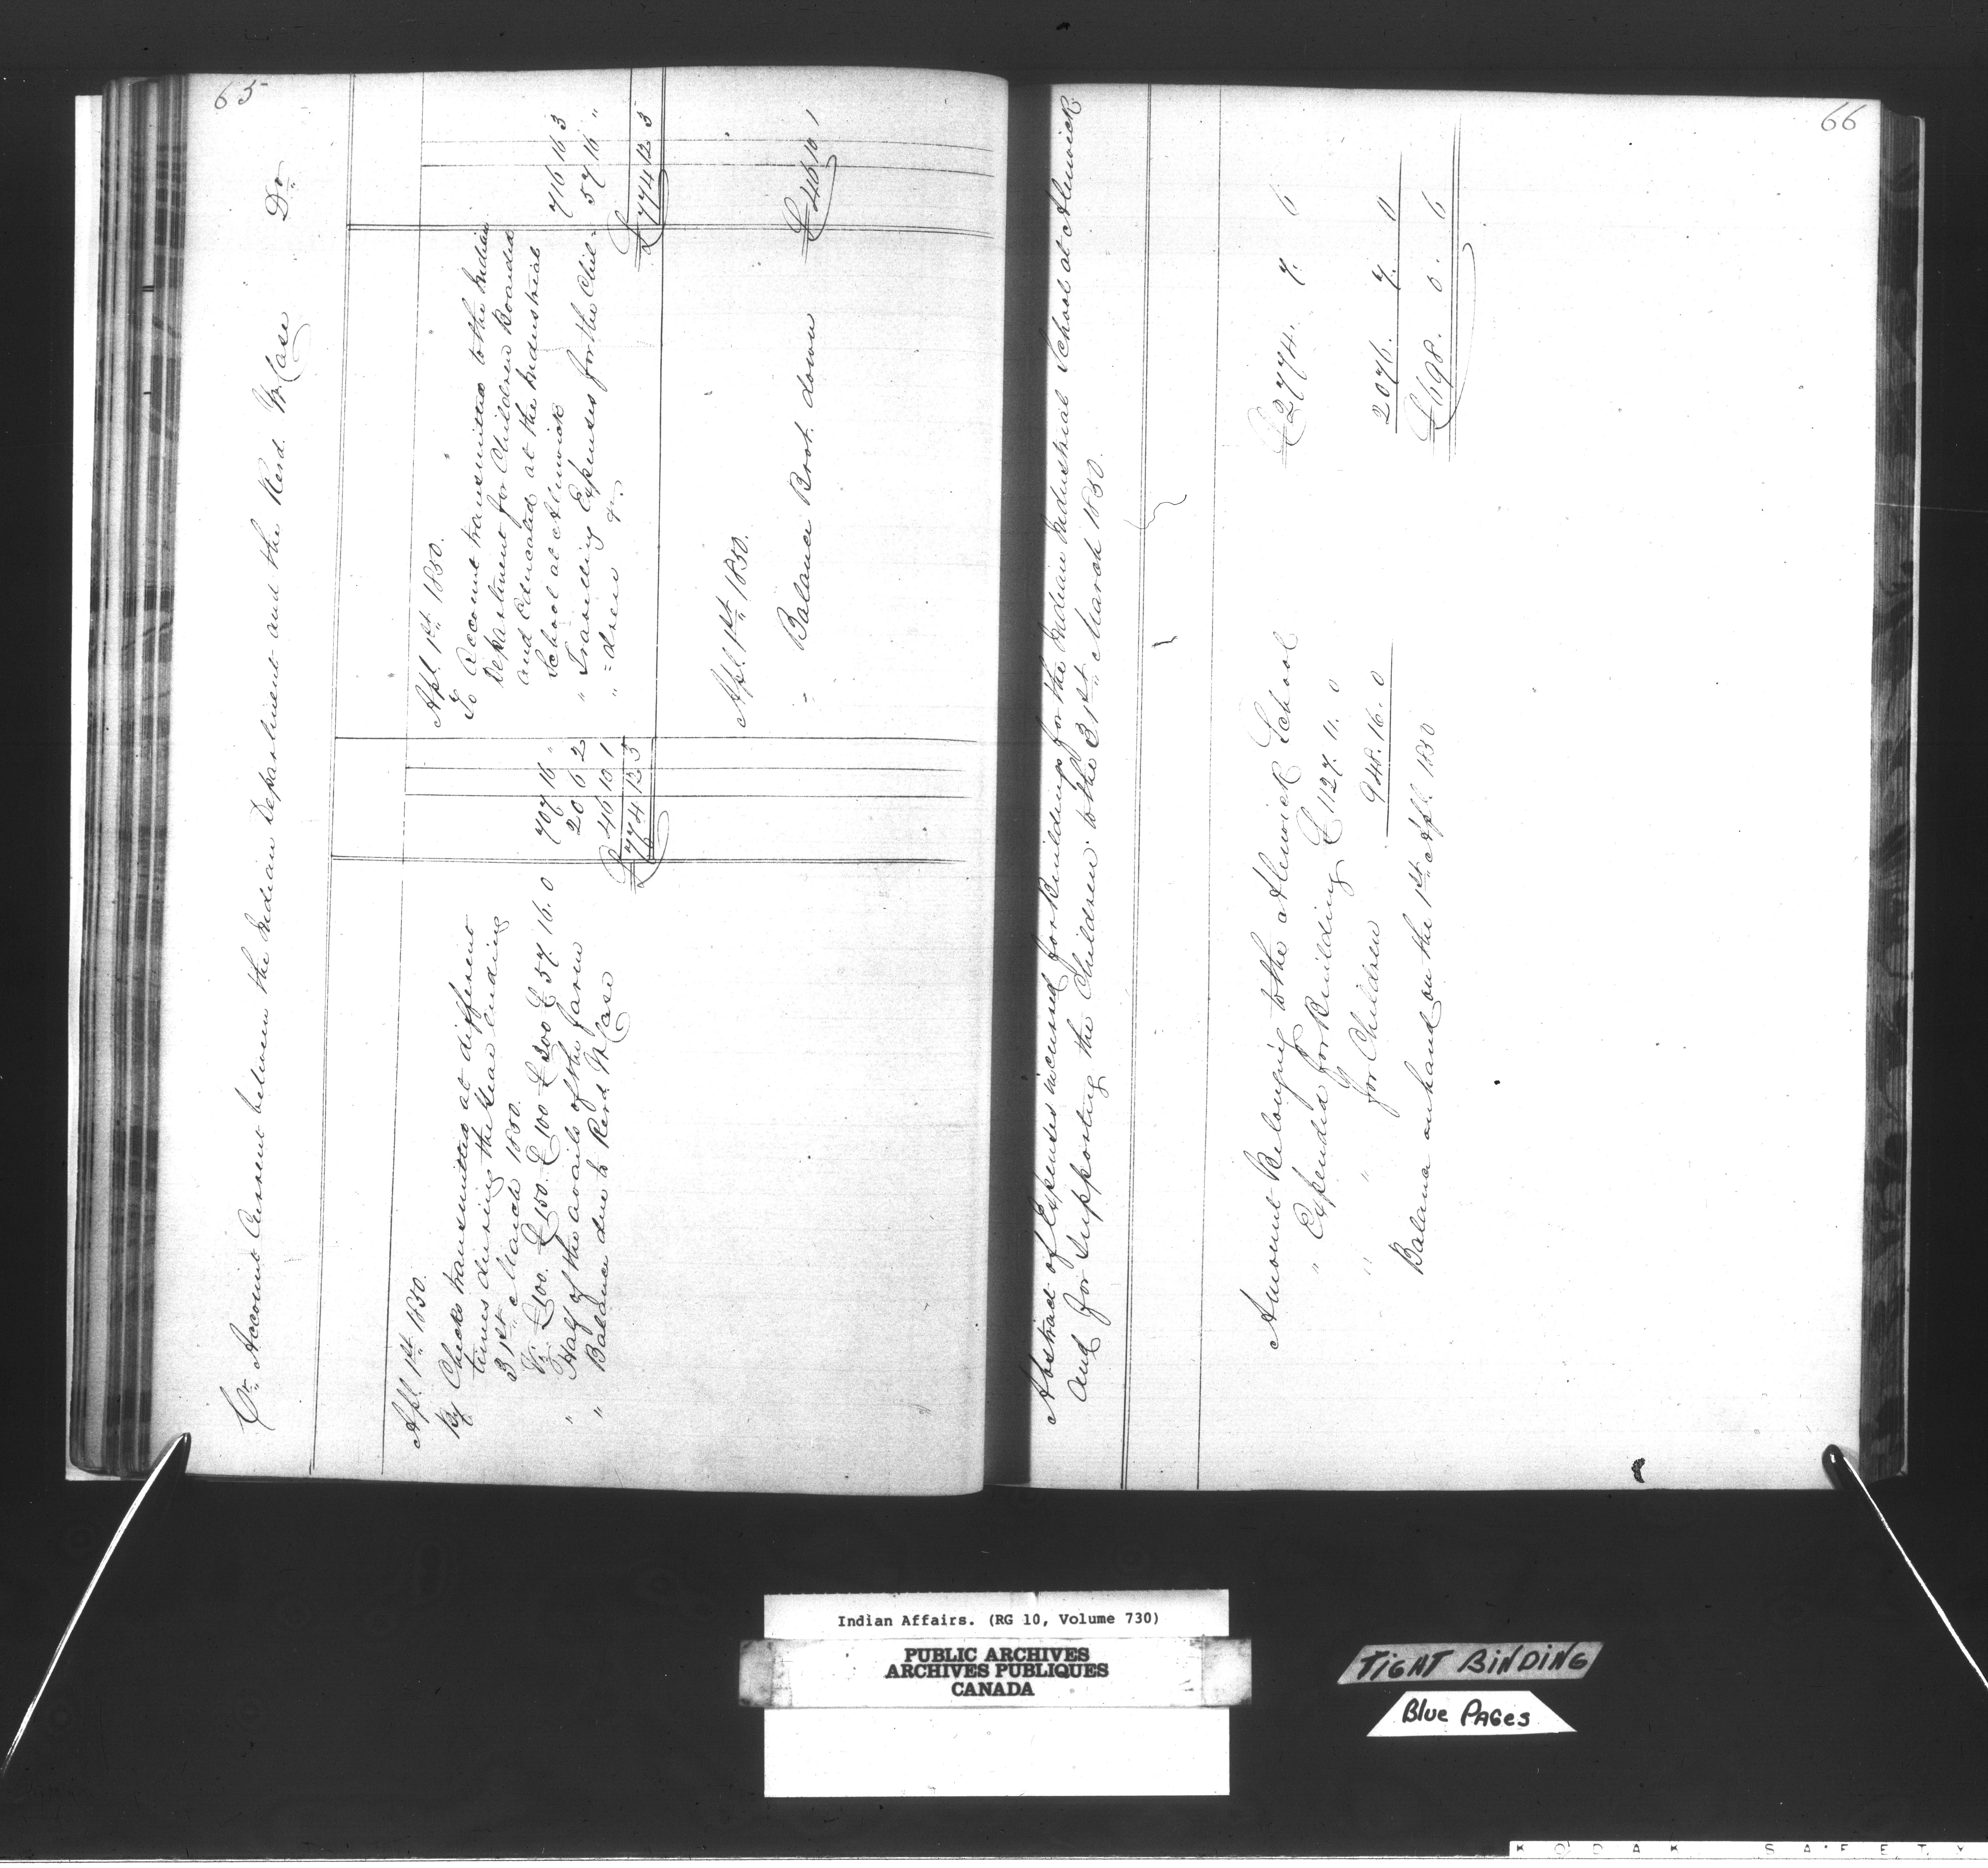 65
Cr. Account Current between the Indian Department and the Revd. W. Case Dr.
Apl. 1st. 1850.
By Checks transmitted at different
times during the Year ending
31st. March 1850.
Viz. £100. £150. £100 £300 £57. 16. 0 707 16 "
" Half of the avails of the farm 20 6 2
" Balance due to Revd. W. Case 46 10 1
£ 774 12 3
Apl. 1st. 1850.
To Account transmitted to the Indian
Department for Children Boarded
and Educated at the Industrial
School at Alnwick 716 16 3
" Travelling Expenses for the Chil= 57 16 "
" =dren &c.
£ 774 12 3
Apl. 1st. 1850.
" Balance Brot. down £ 46 10 1
66
Abstract of Expenses incurred for Buildings for the Indian Industrial School at Alnwick
and for supporting the Children to the 31st. March 1850.
Amount Belonging to the Alnwick School £2774. 7. 6
" Expended for Building £1127. 11. 0
" " for Children 948. 16. 0 2076. 7. 0
Balance on hand on the 1st. Apl. 1850 £698. 0. 6
Indian Affairs. (RG 10, Volume 730)
PUBLIC ARCHIVES
ARCHIVES PUBLIQUES
CANADA
TIGHT BINDING
Blue PAGes
KODAK SAFETY